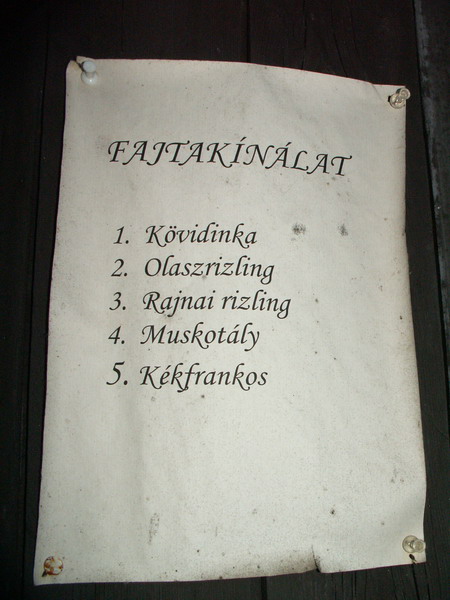 FAJTAKÍNÁLAT
1. Kövidinka
2. Olaszrizling
3. Rajnai rizling
4. Muskotály
5. Kékfrankos